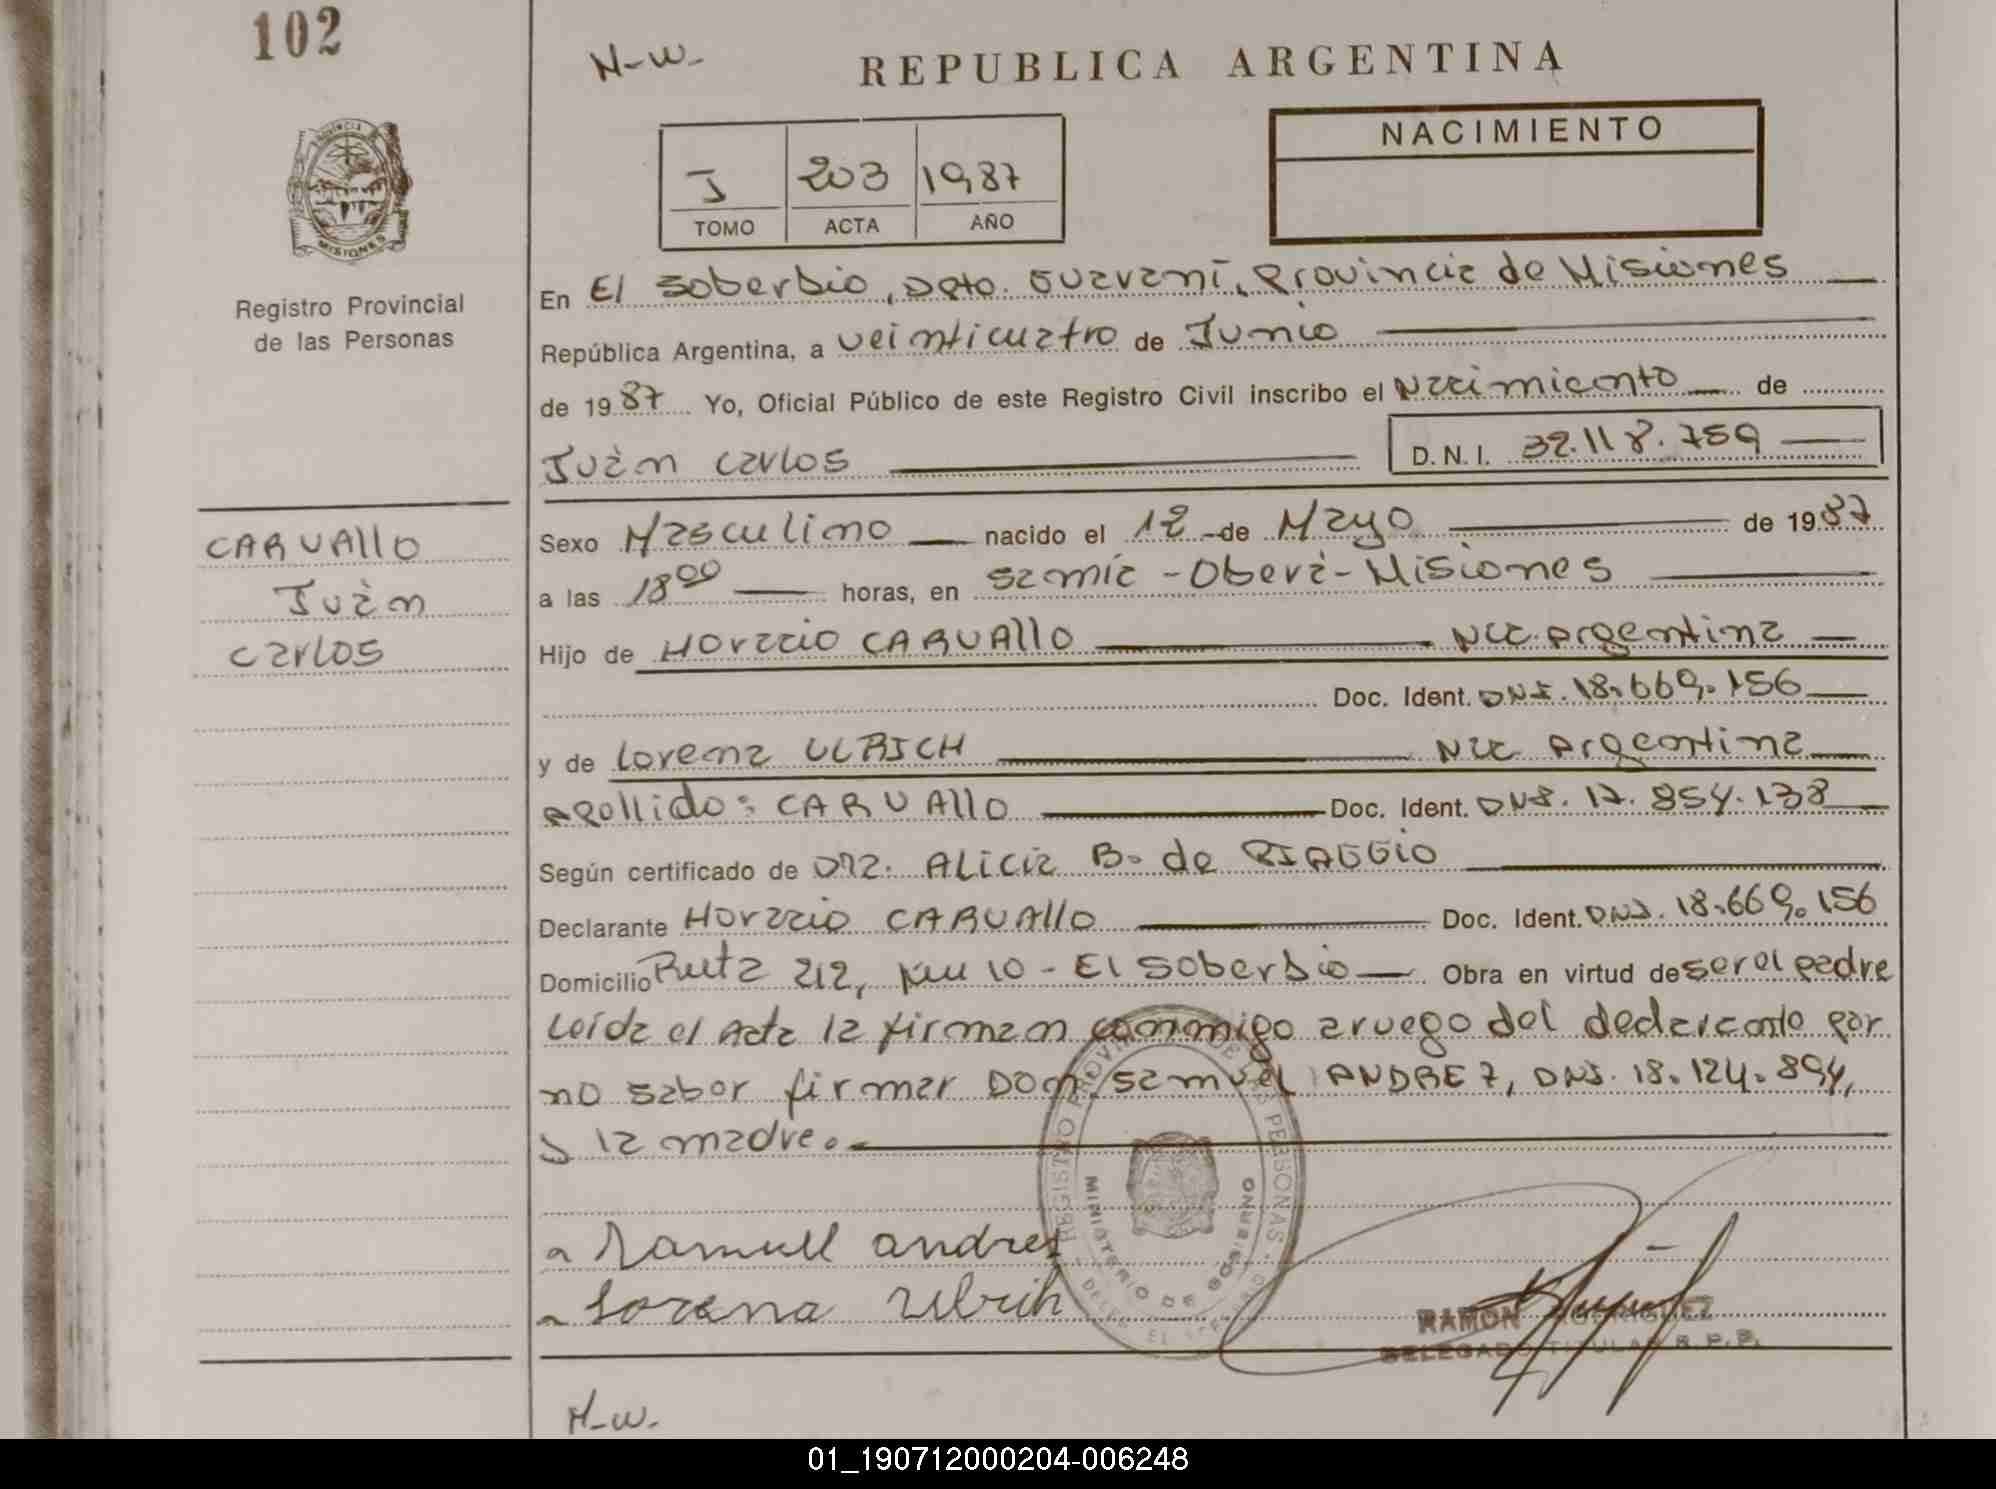 102
N-W-
REPUBLICA ARGENTINA
PROVINCIA
MISIONES
Registro Provincial
de las Personas
I 203 1987
TOMO ACTA AÑO
NACIMIENTO
En El Soberbio, Dpto. Guaraní, Provincia de Misiones
República Argentina, a veinticuatro de Junio
de 1987 Yo, Oficial Público de este Registro Civil inscribo el Nacimiento de
Juàn Carlos D.N.I. 32.118.759
CARVAllO
Juàn
Carlos
Sexo Masculino nacido el 12 de Mayo de 1987
a las 18⁰⁰ horas, en Samic - Oberà - Misiones
Hijo de Horacio CARVAllO Nac. Argentina
Doc. Ident. DNI. 18.669.156
y de Lorena ULRICH Nac Argentina
Apellido: CARVAllO Doc. Ident. DNI. 17.854.138
Según certificado de Dra. Alicia B. de RIAGGIO
Declarante Horacio CARVAllO Doc. Ident. DNI. 18.669.156
Domicilio Ruta 212, Km 10 - El Soberbio Obra en virtud de ser el padre
Leída el Acta la firman conmigo a ruego del declarante por
no saber firmar Don Samuel ANDREZ, DNI. 18.124.894,
y la madre.
REGISTRO PROVINCIAL DE LAS PERSONAS
MINISTERIO DE GOBIERNO
Samuell andrez
Lorena Ulrich
RAMON RODRIGUEZ
DELEGADO TITULAR R.P.P.
N-W-
01_190712000204-006248